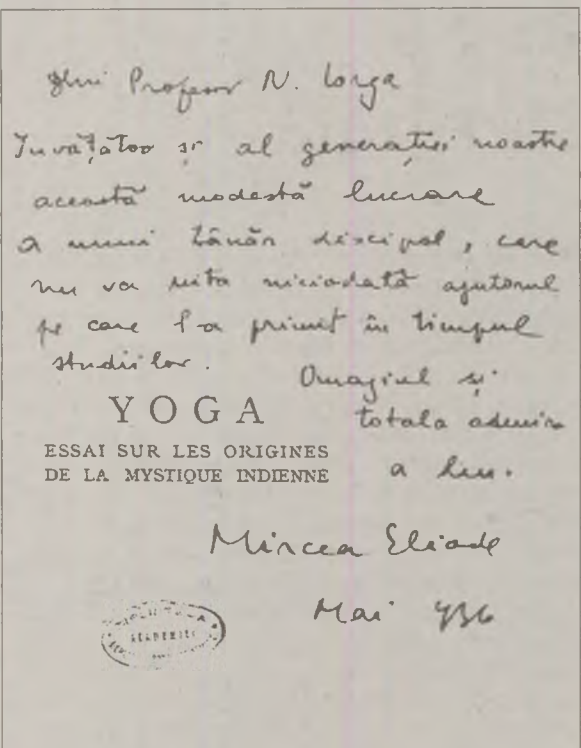 Dlui Profesor N. Iorga
Învățător și al generației noastre
această modestă lucrare
a unui tânăr discipol, care
nu va uita niciodată ajutorul
pe care l-a primit în timpul
studiilor.
Omagiul și
totala admira
a lui.
YOGA
ESSAI SUR LES ORIGINES
DE LA MYSTIQUE INDIENNE
Mircea Eliade
Mai 936